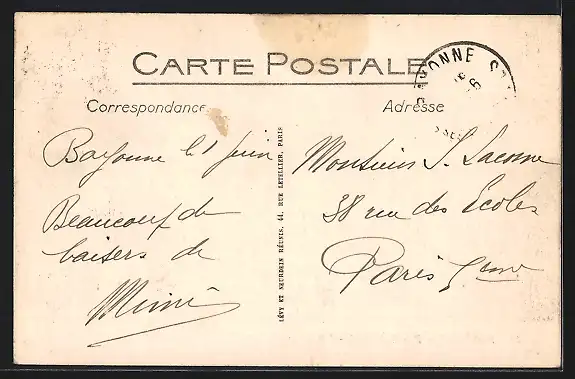 CARTE POSTALE
BAYONNE
Correspondance
Adresse
Bayonne le 1 juin
Beaucoup de
baisers de
Mimi
LÉVY ET NEURDEIN RÉUNIS, 44, RUE LETELLIER, PARIS
Monsieur J. Lacome
38 rue des Écoles
Paris 5eme